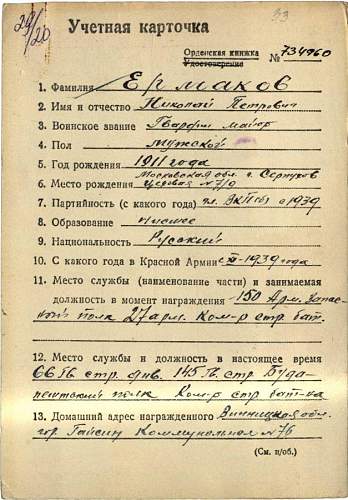 29/
20
33
Учетная карточка
Орденская книжка
Удостоверение № 734960
1. Фамилия Ермаков
2. Имя и отчество Николай Петрович
3. Воинское звание Гвардии майор
4. Пол мужской
5. Год рождения 1911 года
Московская обл. г. Серпухов
6. Место рождения №7/9
7. Партийность (с какого года) чл. ВКП(б) с 1939
8. Образование низшее
9. Национальность Русский
10. С какого года в Красной Армии с 1939 года
11. Место службы (наименование части) и занимаемая
должность в момент награждения 150 Арм. Запас-
ной полк 27 арм. Ком-р стр. бат.
12. Место службы и должность в настоящее время
66 Гв. стр. див. 145 Гв. стр. Буда-
пештский полк Ком-р стр. бат-на
13. Домашний адрес награжденного Винницкая обл.
гор. Гайсин Коммунальная №76
(См. н/об.)